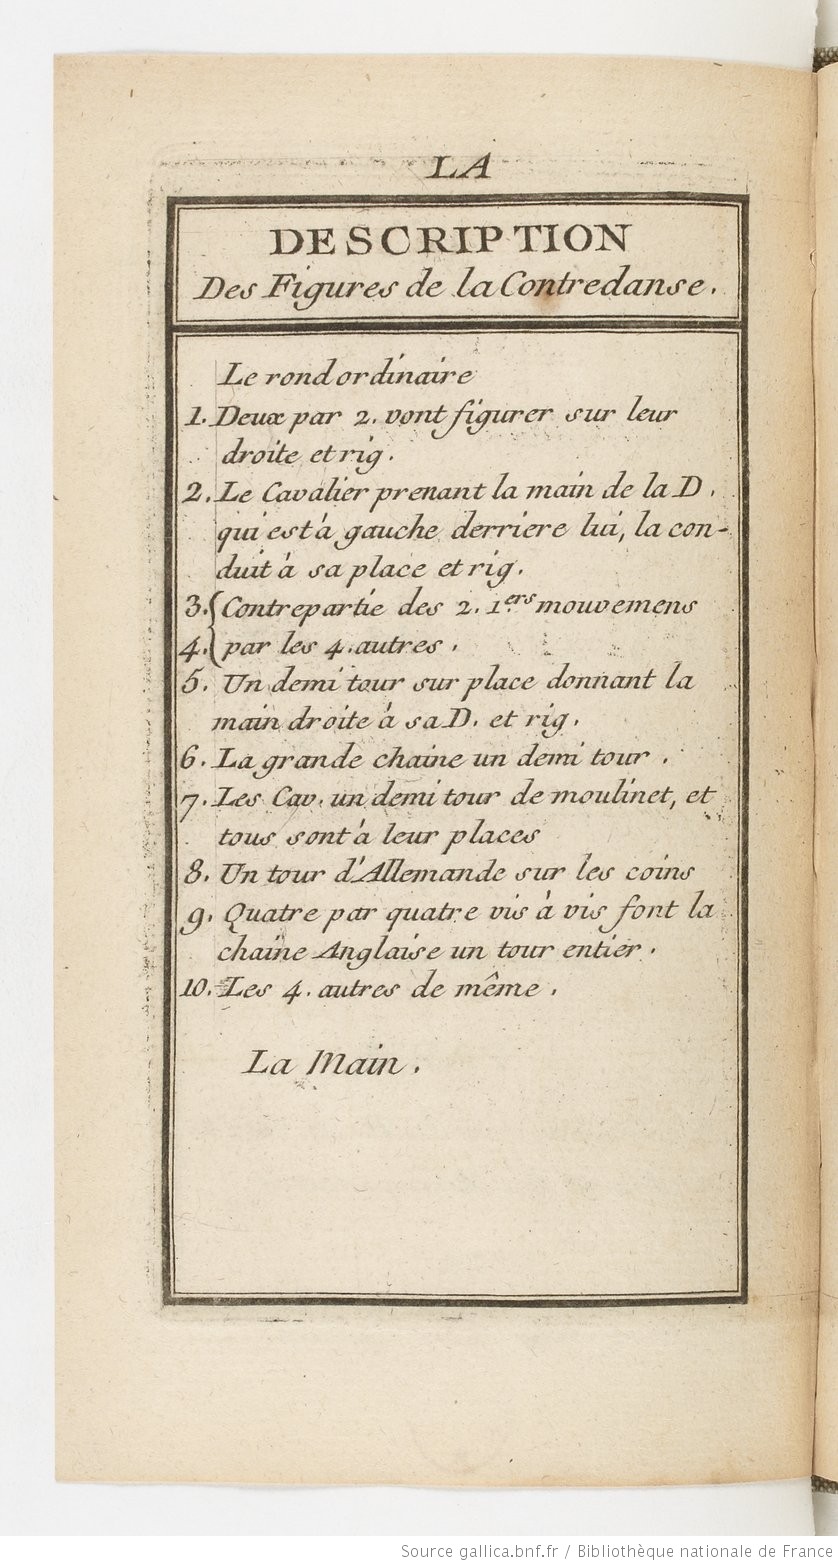 LA
DESCRIPTION
Des Figures de la Contredanse.
Le rond ordinaire
1. Deux par 2. vont figurer sur leur
droite et rig.
2. Le Cavalier prenant la main de la D.
qui est à gauche derriere lui, la con-
duit à sa place et rig.
3. { Contrepartie des 2. 1.ers mouvemens
4. { par les 4. autres.
5. Un demi tour sur place donnant la
main droite à sa D. et rig.
6. La grande chaine un demi tour.
7. Les Cav. un demi tour de moulinet, et
tous sont à leur places
8. Un tour d'Allemande sur les coins
9. Quatre par quatre vis à vis font la
chaine Anglaise un tour entier.
10. Les 4. autres de même.
La Main.
Source gallica.bnf.fr / Bibliothèque nationale de France